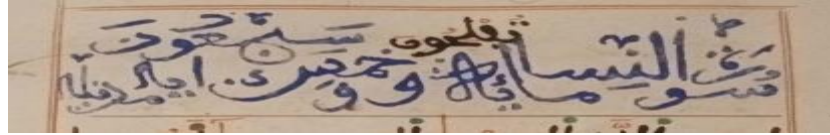 تفلحون
سورة النساء مائة وخمس وسبعون اية مدنية